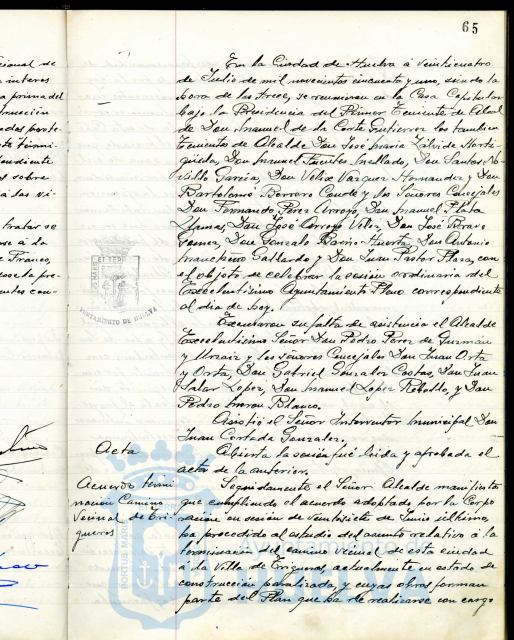 65
cional de
interes
prima del
trucción
adas poste-
diente
s sobre
a las vi-
tratar se
se á la
Franco,
ose la pre-
entes con-
En la Ciudad de Huelva á veinticuatro
de Julio de mil novecientos cincuenta y uno, siendo la
hora de las trece, se reunieron en la Casa Capitular
bajo la Presidencia del Primer Teniente de Alcal
de Don Manuel de la Corte Gutierrez los tambien
Tenientes de Alcalde Don José Maria Zalvide Morti-
gueda, Don Manuel Fuentes Mellado, Don Santos No-
villo Garcia, Don Velix Vazquez Hernandez y Don
Bartolomé Borrero Conde y los Señores Concejales
Don Fernando Perez Arroyo, Don Manuel Plata
Llamas, Don José Arroyo Velez, Don José Bravo
Gomez, Don Gonzalo Barrio-Huerta, Don Antonio
Mancheño Gallardo y Don Juan Pastor Plaza, con
el objeto de celebrar la sesión ordinaria del
Excelentisimo Ayuntamiento Pleno correspondiente
al dia de hoy.
AYUNTAMIENTO DE HUELVA
Excusaron su falta de asistencia el Alcalde
Excelentisimo Señor Don Pedro Perez de Guzman
y Urzaiz y los Señores Concejales Don Juan Orta
y Orta, Don Gabriel Gonzalez Costas, Don Juan
Salar Lopez, Don Manuel Lopez Rebollo, y Don
Pedro Moron Blanco.
Asistió el Señor Interventor Municipal Don
Juan Cortada Gonzalez.
Acta
Abierta la sesión fué leida y aprobada el
acta de la anterior.
Acuerdo termi
nación Camino
Vecinal de Tri-
gueros
Seguidamente el Señor Alcalde manifiesta
que cumpliendo el acuerdo adoptado por la Corpo
ración en sesión de veintisiete de Junio último,
ha procedido al estudio del asunto relativo á la
terminación del camino vecinal de esta ciudad
á la Villa de Trigueros, actualmente en estado de
construcción paralizada, y cuyas obras forman
parte del Plan que ha de realizarse con cargo
Ayuntamiento de
HUELVA